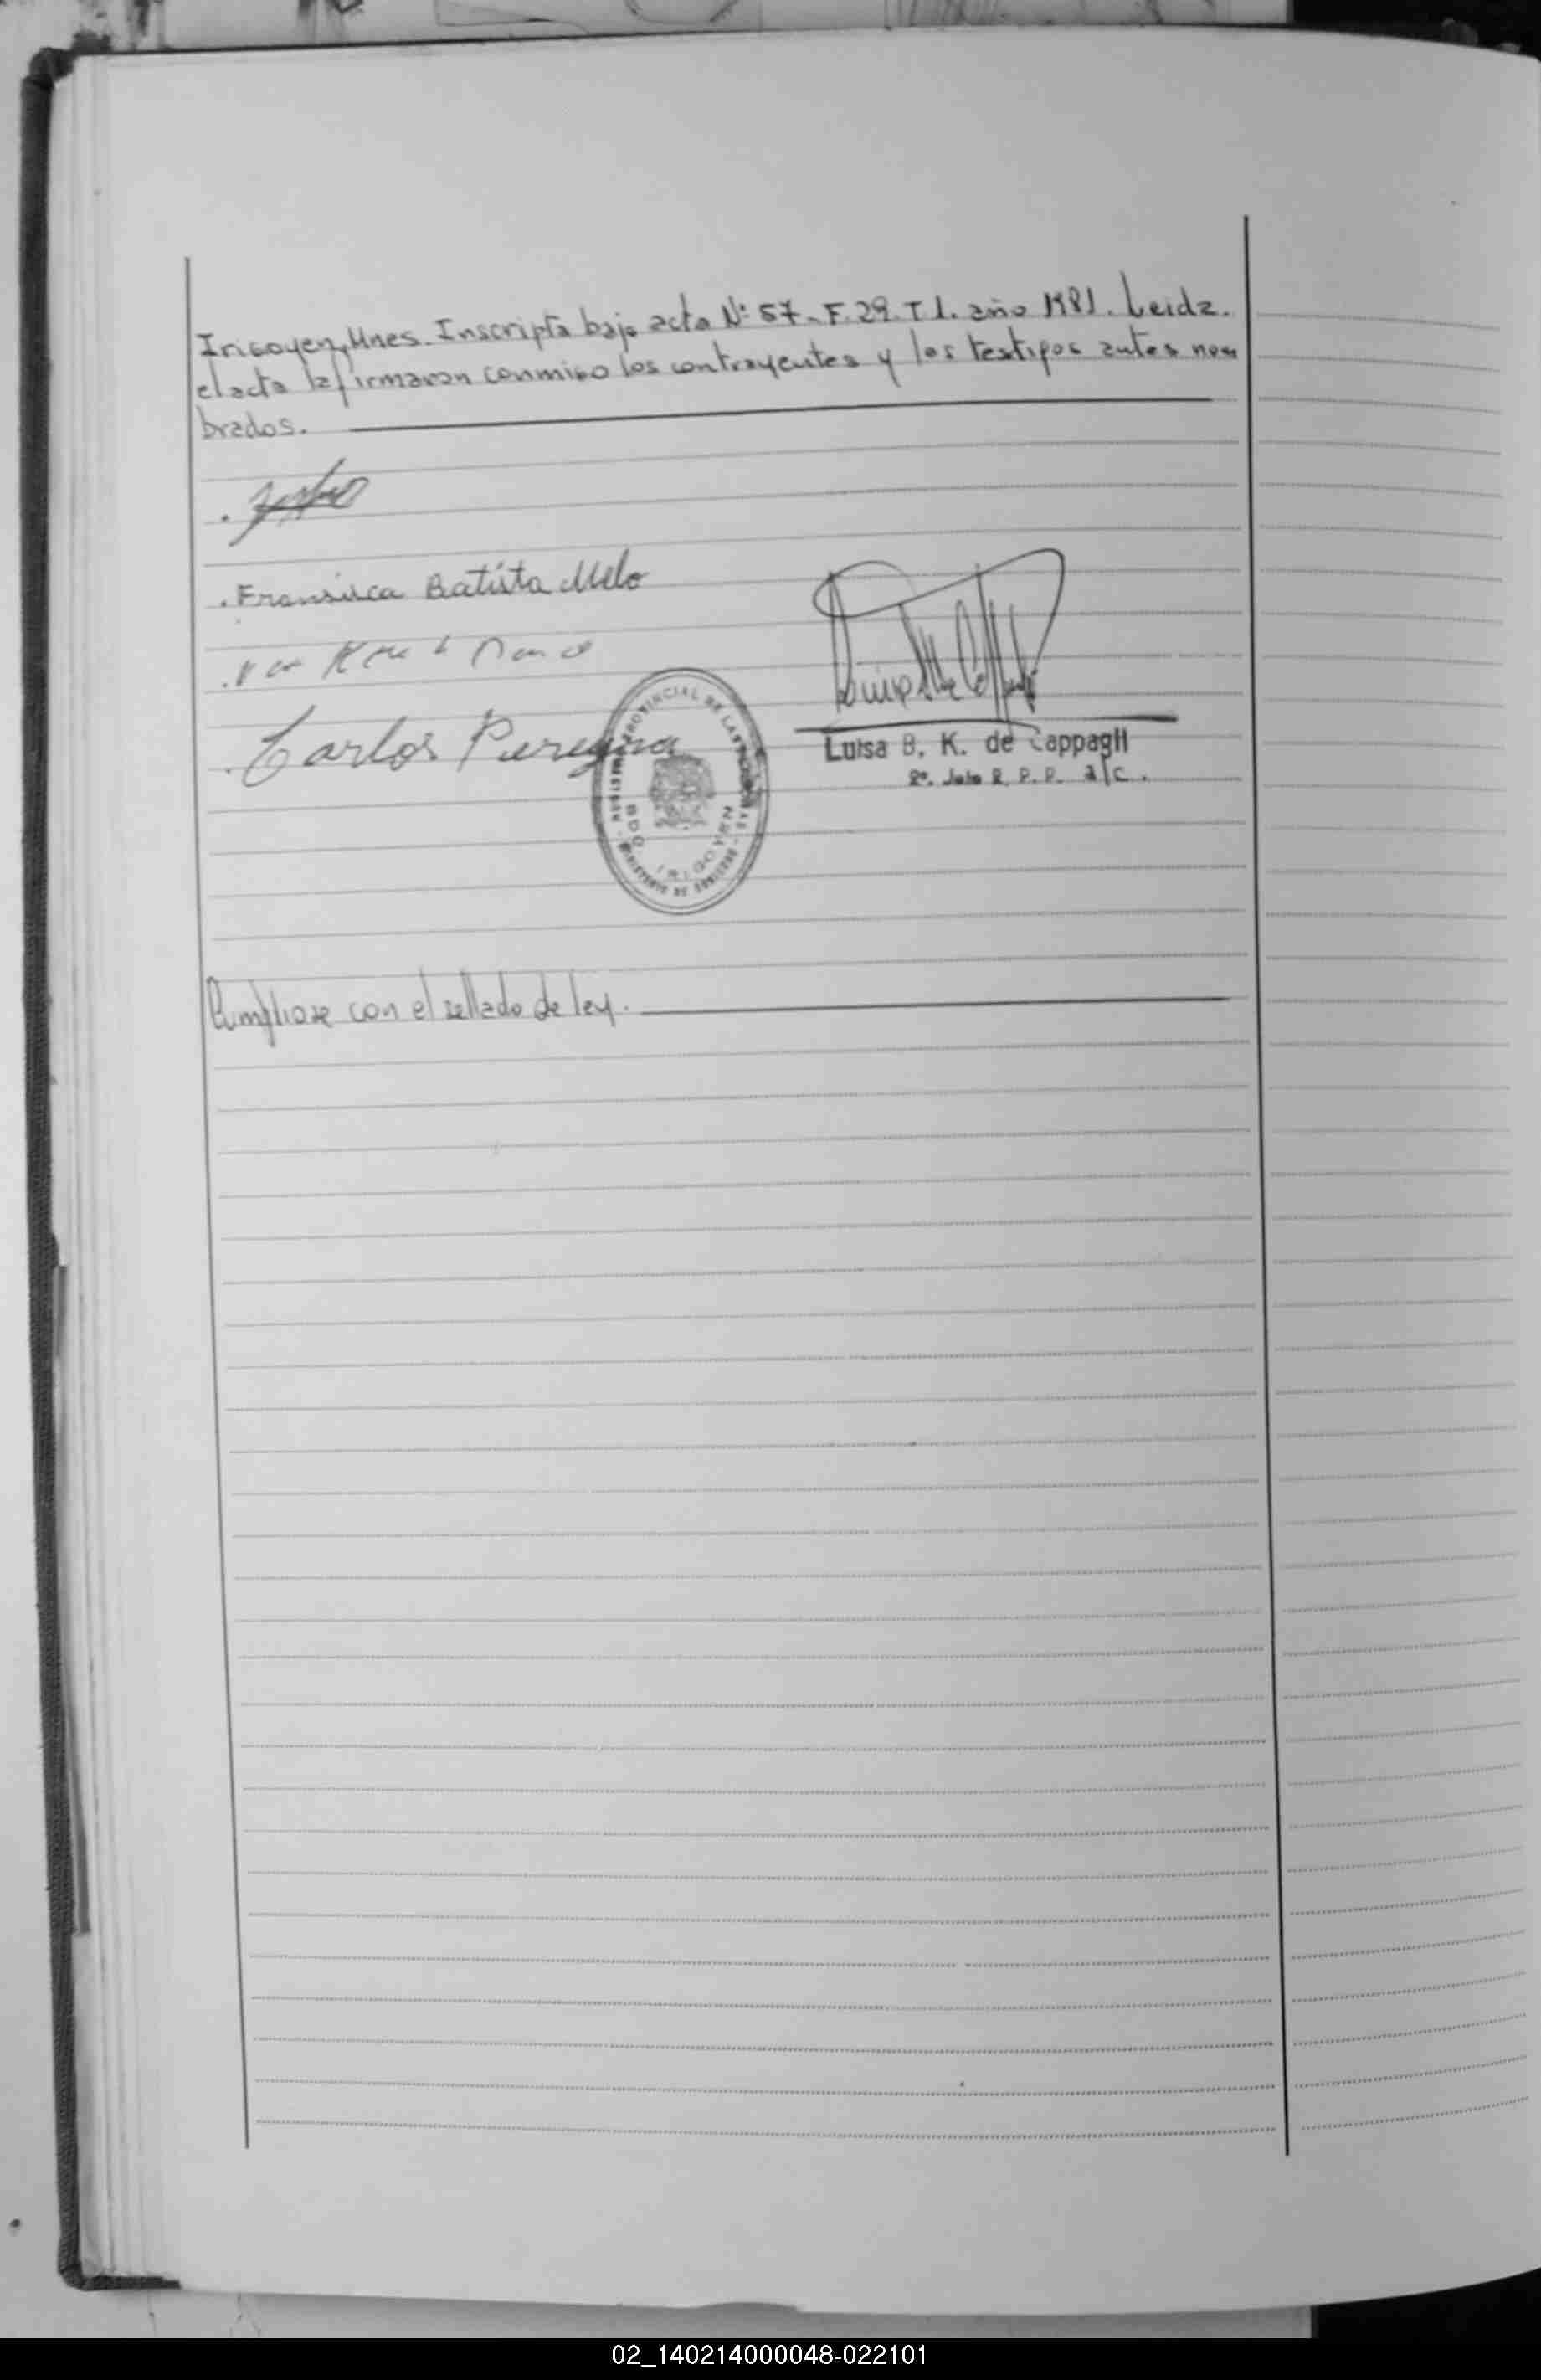 Irigoyen, Mnes. Inscripta bajo acta Nº 57- F. 29. T 1. año 1981. Leida.
el acta la firmaron conmigo los contrayentes y los testigos antes nom
brados.
. Fransisca Batista Melo
. Carlos Pereyra
Luisa B. K. de Cappagli
2º. Jefe R. P. P. a/c.
PROVINCIAL DE LAS PERSONAS
MINISTERIO DE GOBIERNO
BDO. IRIGOYEN
Cumpliose con el sellado de ley.
02_140214000048-022101